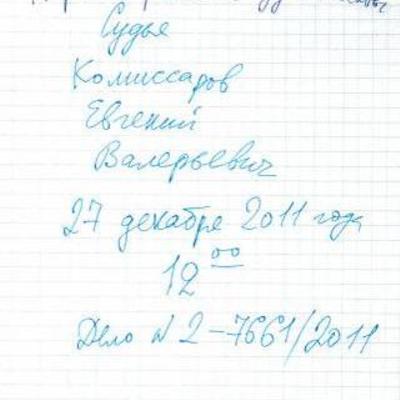 Судья
Комиссаров
Евгений
Валерьевич
27 декабря 2011 года
12 00
Дело № 2-7661/2011